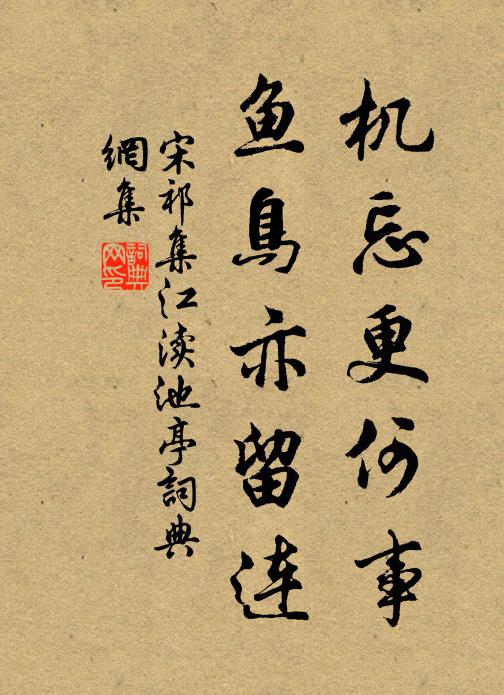 机忘更何事
鱼鳥亦留連
宋祁集江渎池亭詞典
網集
詞典
网印